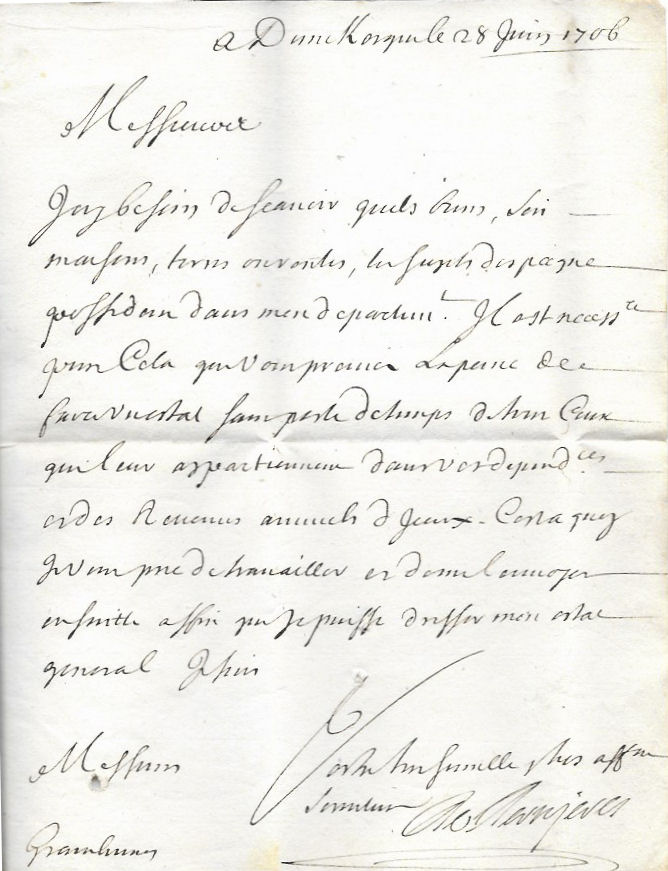 A Dunkerque le 28 Juin 1706
Messieurs
J'ay besoin de scauoir quels biens, soit
maisons, terres ou rentes, les sujets despagne
possedent dans mon departemt. Il est necessre
pour Cela que vous preniez La peine de
faire vn estat sans perte de temps de tous Ceux
qui leur appartiennent dans vos dependces
et des Reuenus annuels d'Jceux. Cest a quoy
Je vous prie de trauailler et de me l'enuoyer
ensuitte affin que Je puisse dresser mon estat
general Je suis
Messieurs
Vostre tres humble et tres affne
seruiteur
Grauelines